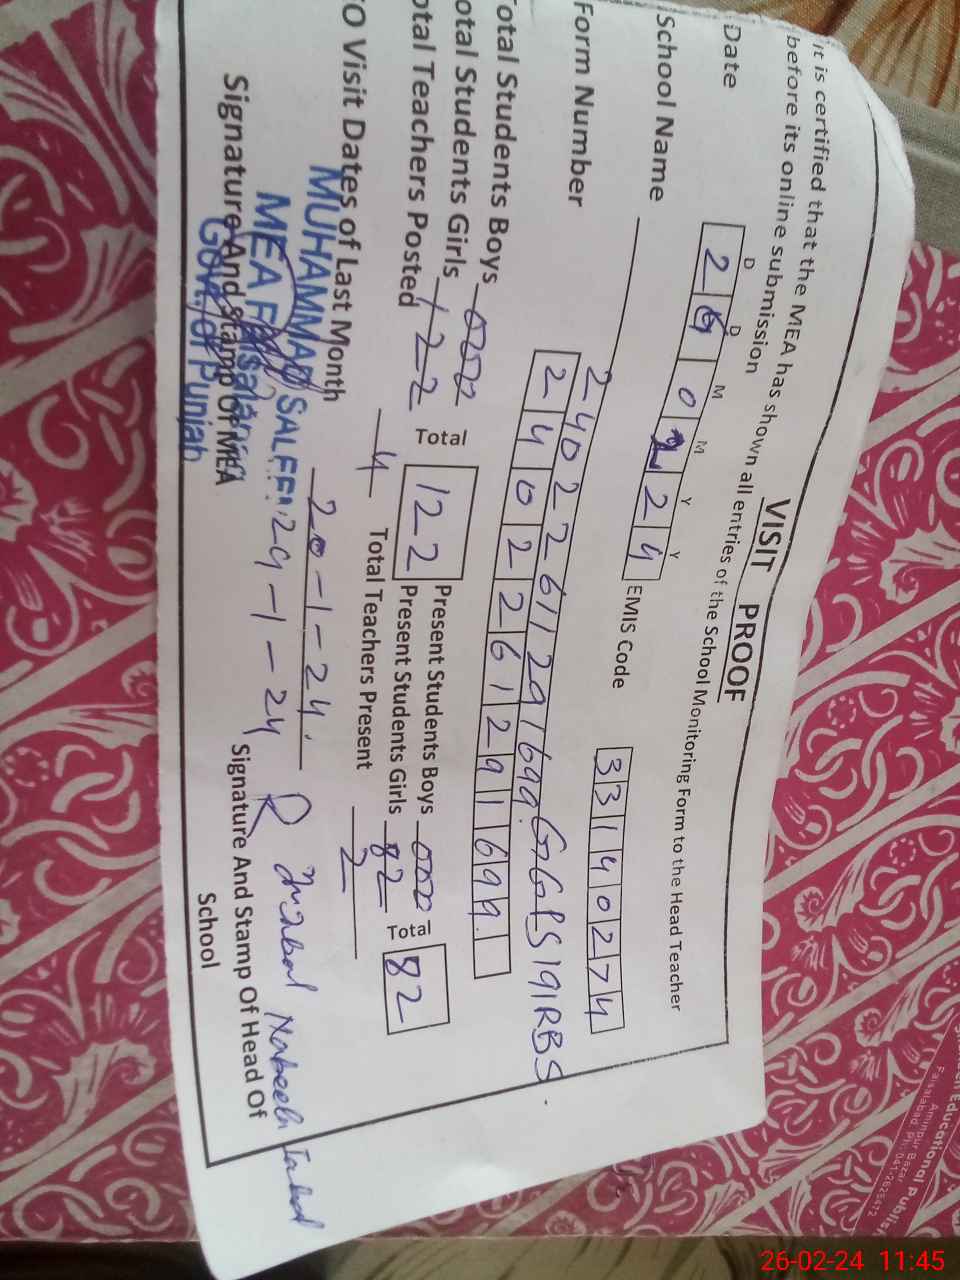 VISIT PROOF
It is certified that the MEA has shown all entries of the School Monitoring Form to the Head Teacher
before its online submission
D D M M Y Y
Date 26 02 24 EMIS Code 33140274
School Name 2402261291699. GGPS 191RBS.
Form Number 2402261291699.
Total Students Boys Present Students Boys
Total Students Girls 122 Total 122 Present Students Girls 82 Total 82
Total Teachers Posted 4 Total Teachers Present 2
TO Visit Dates of Last Month 20-1-24
29-1-24
MUHAMMAD SALEEM
MEA Faisalabad
Govt. of Punjab
Signature And Stamp Of MEA
Nabeela
Signature And Stamp Of Head Of
School
Educational Publish
Aminpur Bazar
Faisalabad. Ph: 041-2626412
26-02-24 11:45